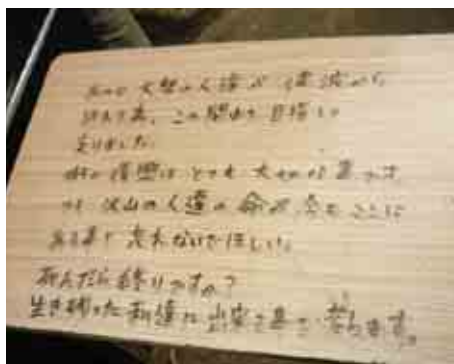 大勢の人達が津波から
この閖中を目指して
走りました。
街の復興はとても大切な事です。
沢山の人達の命が今もここに
ある事を忘れないでほしい。
死んだら終りですか?
生き残った私達に出来る事を考えます。